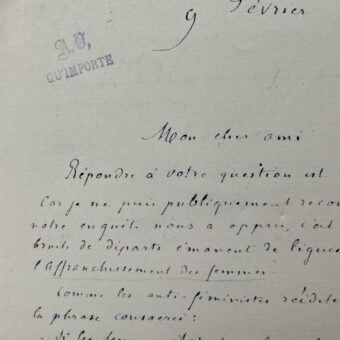 9 Février
A.V,
QU'IMPORTE
Mon cher ami
Répondre à votre question est
Car je ne puis publiquement recon
votre enquête nous a appris, c'est
bruits de départs émanent de ligues
l'affranchissement des femmes
Comme les anti-féministes
la phrase consacrée :
Si les